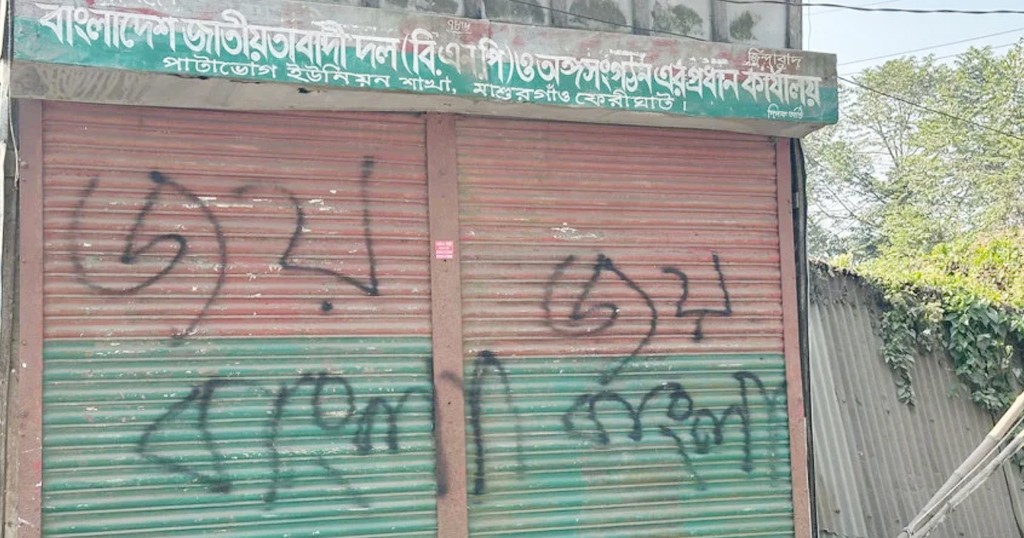 বাংলাদেশ জাতীয়তাবাদী দল (বি.এনপি) ও অঙ্গসংগঠন এর প্রধান কার্যালয়
পাটাভোগ ইউনিয়ন শাখা, মাশুরগাঁও ফেরীঘাট।
জয় জয়
বাংলা বাংলা